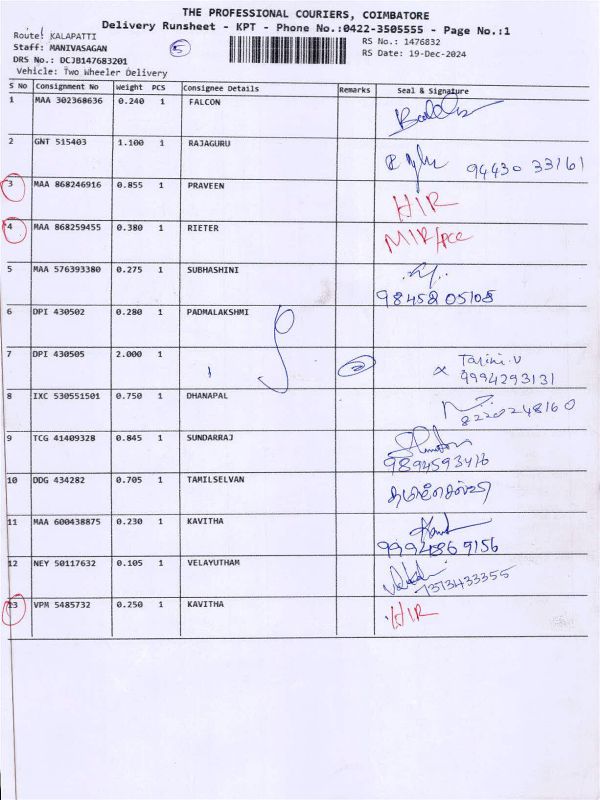 THE PROFESSIONAL COURIERS, COIMBATORE
Delivery Runsheet - KPT - Phone No.:0422-3505555 - Page No.:1
Route: KALAPATTI
RS No.: 1476832
Staff: MANIVASAGAN
5
RS Date: 19-Dec-2024
DRS No.: DCJB147683201
Vehicle: Two Wheeler Delivery
S No Consignment No Weight PCS Consignee Details Remarks Seal & Signature
1 MAA 302368636 0.240 1 FALCON
2 GNT 515403 1.100 1 RAJAGURU
94430 33161
3 MAA 868246916 0.855 1 PRAVEEN
HIR
4 MAA 868259455 0.380 1 RIETER
MIR/pcc
5 MAA 576393380 0.275 1 SUBHASHINI
98458 05108
6 DPI 430502 0.280 1 PADMALAKSHMI
7 DPI 430505 2.000 1
2
Tarini.V
9994293131
8 IXC 530551501 0.750 1 DHANAPAL
8220248160
9 TCG 41409328 0.845 1 SUNDARRAJ
9894593416
10 DDG 434282 0.705 1 TAMILSELVAN
11 MAA 600438875 0.230 1 KAVITHA
12 NEY 50117632 0.105 1 VELAYUTHAM
7373433355
13 VPM 5485732 0.250 1 KAVITHA
HIR